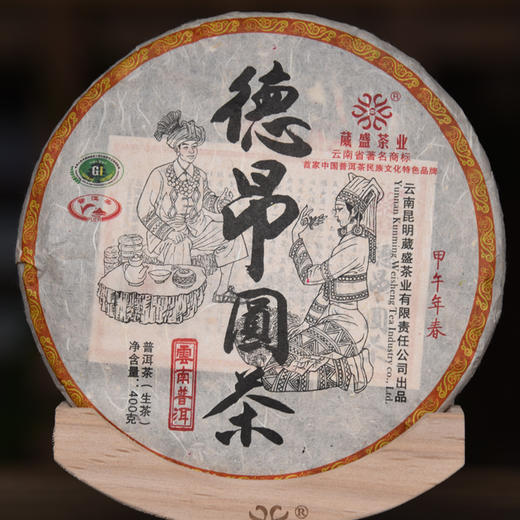 德昂圓茶
®
葳盛茶业
云南省著名商标
首家中国普洱茶民族文化特色品牌
云南昆明葳盛茶业有限责任公司出品
Yunnan Kunming Weisheng Tea Industry co., Ltd.
甲午年春
普洱茶（生茶）
净含量：400克
雲南普洱
®